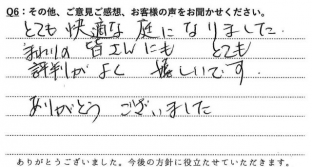 Q6：その他、ご意見ご感想、お客様の声をお聞かせください。
とても快適な庭になりました.
まわりの皆さんにもとても
評判がよく嬉しいです.
ありがとうございました
ありがとうございました。今後の方針に役立たせていただきます。